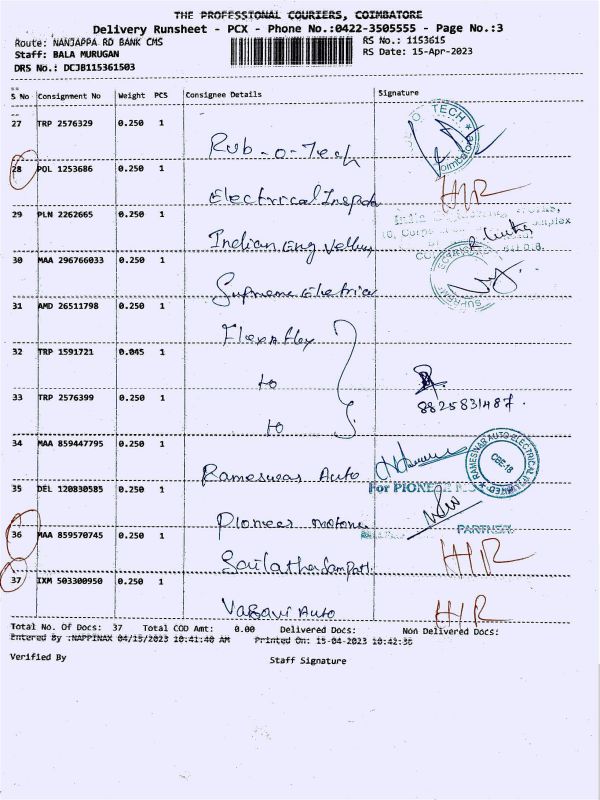 THE PROFESSIONAL COURIERS, COIMBATORE
Delivery Runsheet - PCX - Phone No.:0422-3505555 - Page No.:3
Route: NANJAPPA RD BANK CMS
RS No.: 1153615
Staff: BALA MURUGAN
RS Date: 15-Apr-2023
DRS No.: DCJB115361503
S No Consignment No Weight PCS Consignee Details Signature
27 TRP 2576329 0.250 1
Rub-o-Tech
TECH
28 POL 1253686 0.250 1
Electrical
29 PLN 2262665 0.250 1
Indian Eng
30 MAA 296766033 0.250 1
Supreme
31 AMD 26511798 0.250 1
32 TRP 1591721 0.045 1
to
33 TRP 2576399 0.250 1
8825831487.
to
34 MAA 859447795 0.250 1
Rameswar Auto
RAMESWAR AUTO ELECTRICAL
CBE-18
35 DEL 120830585 0.250 1
For PIONEER
Pioneer Motors
PARTNER
36 MAA 859570745 0.250 1
37 IXM 503300950 0.250 1
Vasavi Auto
Total No. Of Docs: 37 Total COD Amt: 0.00 Delivered Docs: Non Delivered Docs:
Entered By :NAPPINAX 04/15/2023 10:41:40 AM Printed On: 15-04-2023 10:42:36
Verified By
Staff Signature